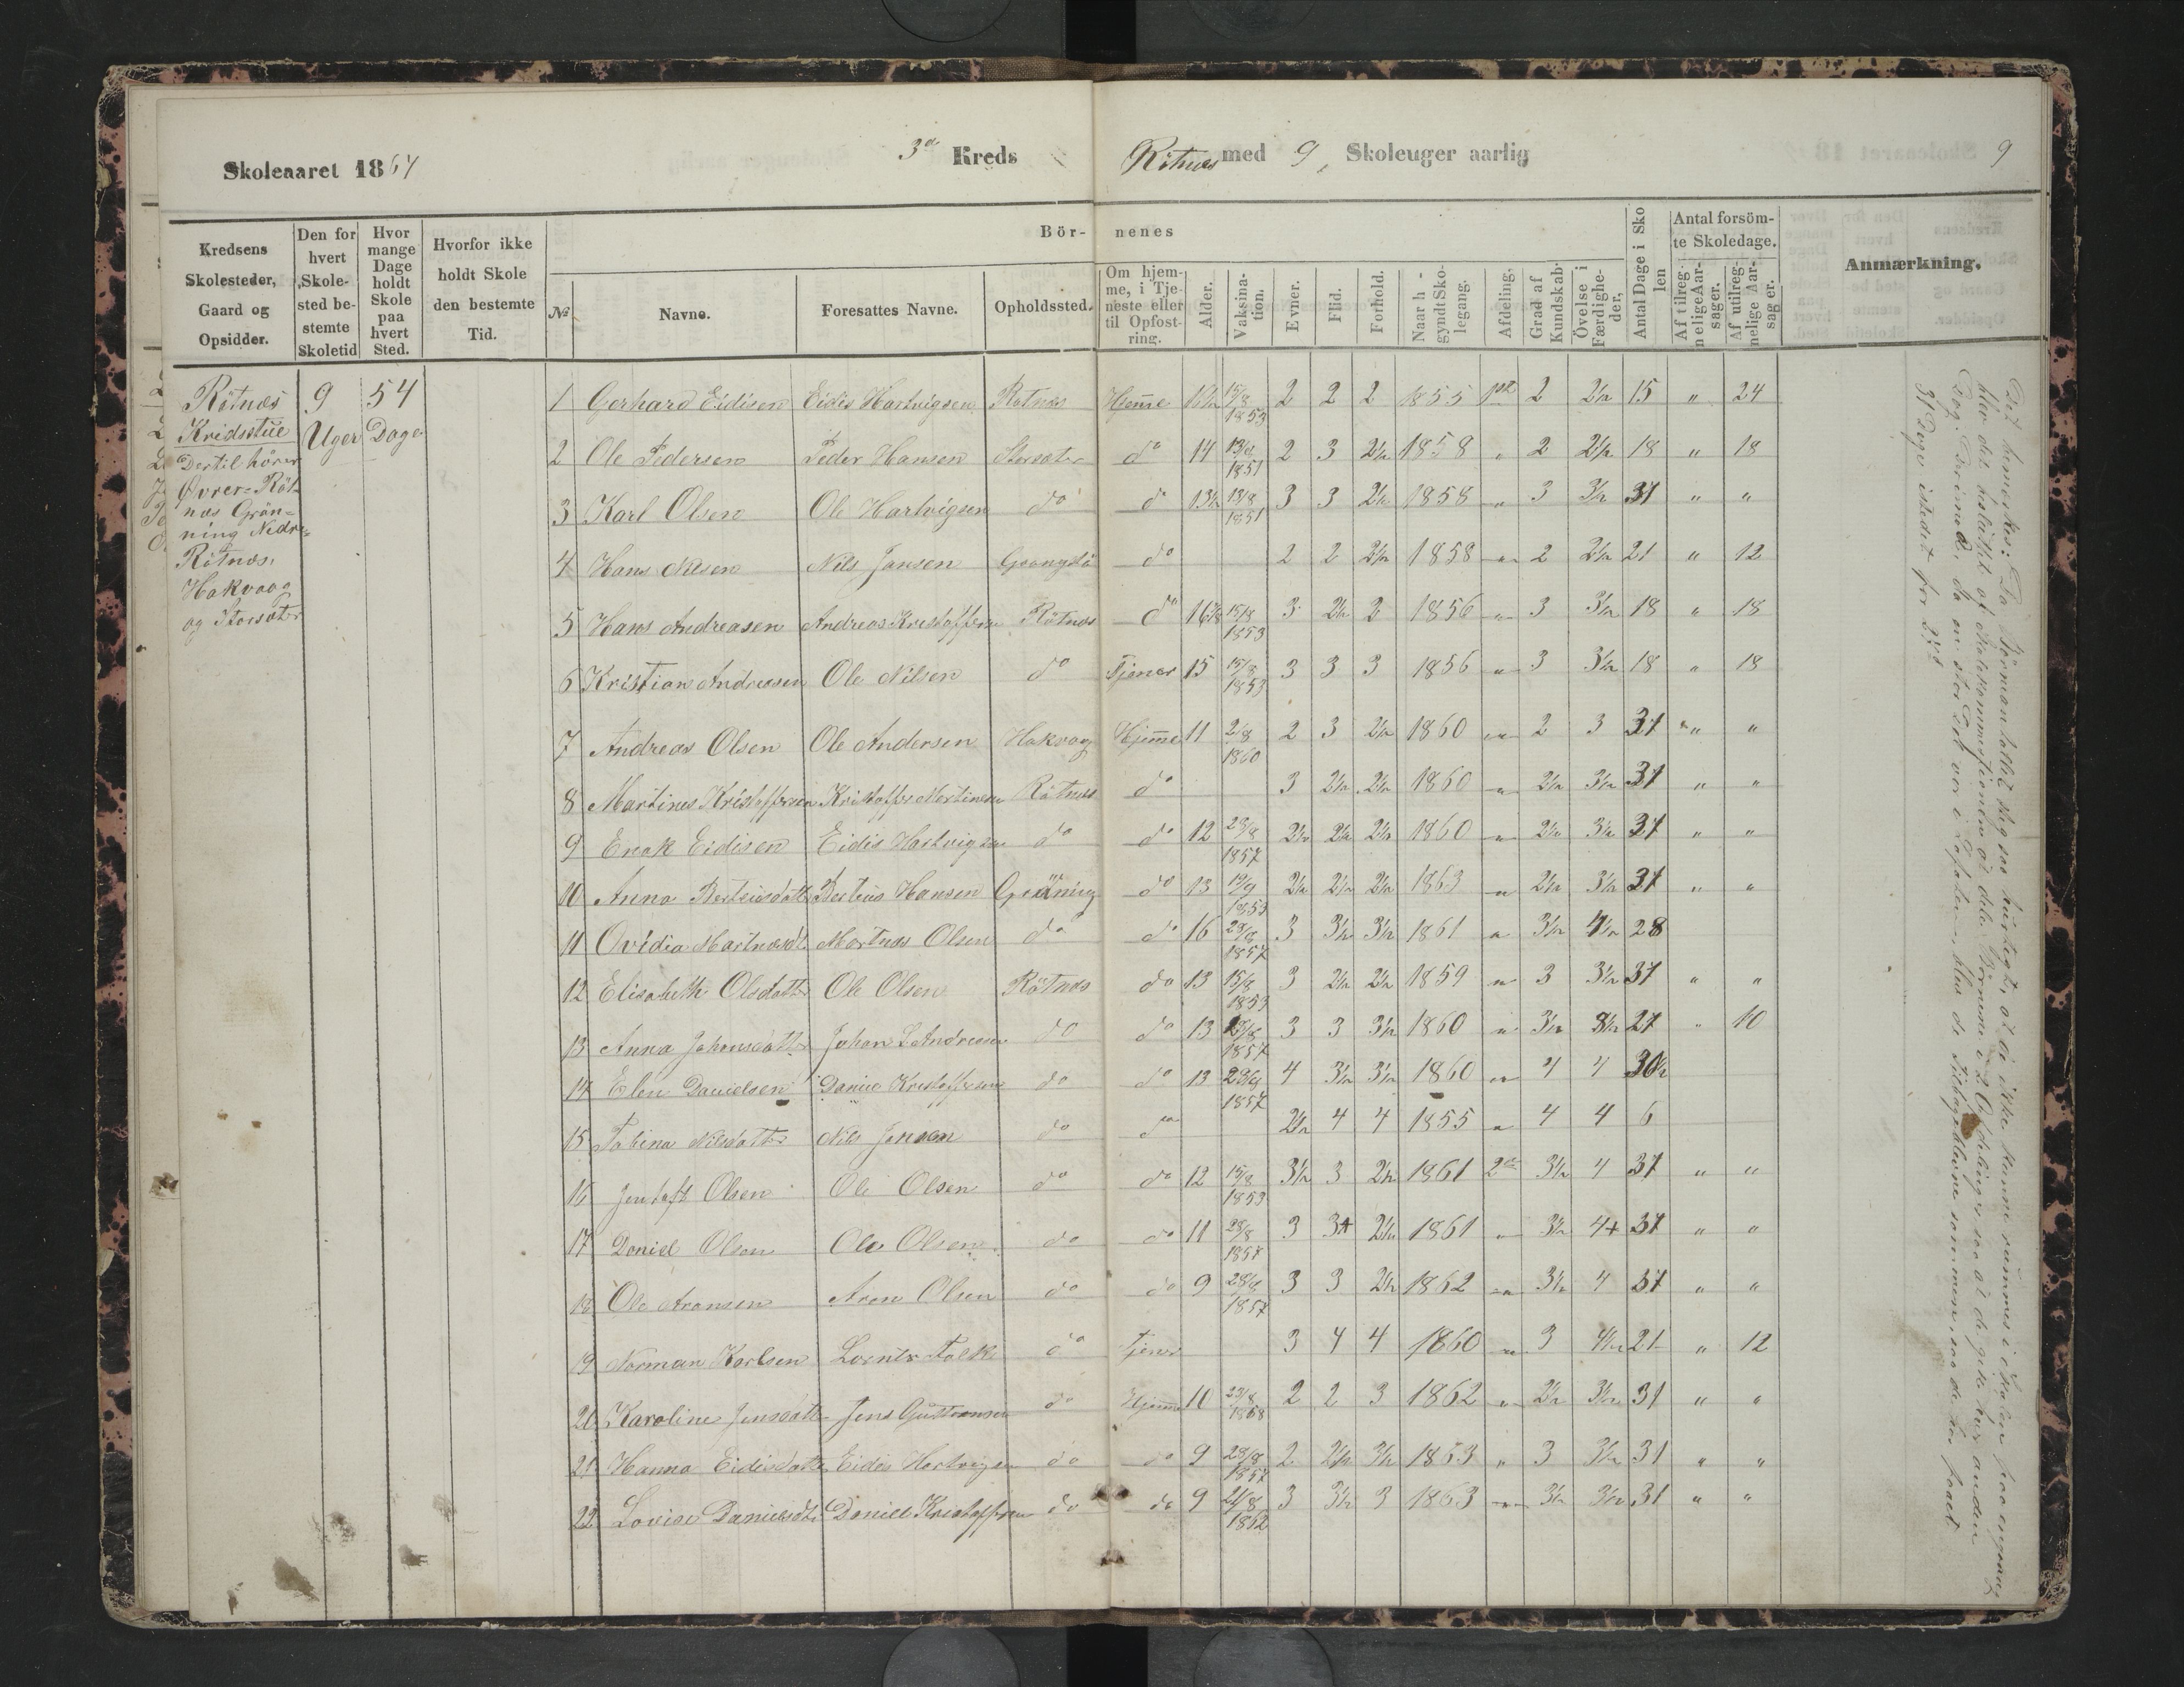 Skoleaaret 1864 3die Kreds Rötnæs med 9 Skoleuger aarlig 9
Kredsens Skolesteder, Gaard og Opsidder.
Den for hvert Skolested bestemte Skoletid
Hvor mange Dage holdt Skole paa hvert Sted.
Hvorfor ikke holdt Skole den bestemte Tid.
Bör- nenes
№ Navne. Foresattes Navne. Opholdssted.
Om hjemme, i Tjeneste eller til Opfostring.
Alder.
Vaksination.
Evner.
Flid.
Forhold.
Naar h - gyndt Skolegang.
Afdeling.
Grad af Kundskab.
Övelse i Færdigheder,
Antal Dage i Skolen
Antal forsömte Skoledage.
Af tilregnelige Aarsager.
Af utilregnelige Aarsager.
Anmærkning.
Rötnæs 9 54
Kridsstue Uger Dage
Dertil hörer
Øvrer-Röt-
næs Grön-
ning Nedre-
Rötnæs,
Hakvaag
og Storsæter
1 Gerhard Eidisen Eidis Hartvigsen Rötnæs Hjeme 15/8 1853 2 2 2 1855 1ste 2 2½ 15 " 24
2 Ole Pedersen Peder Hansen Storsæter do 14 13/8 1851 2 3 2½ 1858 " 2 2½ 18 " 18
3 Karl Olsen Ole Hartvigsen do do 13½ 13/8 1851 3 3 2½ 1858 " 3 3½ 31 " "
4 Hans Nilsen Nils Jansen do 2 2 2½ 1858 " 2 2½ 21 " 12
5 Hans Andreasen Andreas Kristoffersen Rötnæs do 15/8 1853 3 2½ 2 1856 " 3 3½ 18 " 18
6 Kristian Andreasen Ole Nilsen do Tjener 15 15/8 1853 3 3 3 1856 " 3 3½ 18 " 18
7 Andreas Olsen Ole Andersen Hakvaag Hjeme 11 2/8 1860 2 3 2½ 1860 " 2 3 37 " "
8 Martines Kristoffersen Kristoffer Martinesen Rötnæs do 3 2½ 2½ 1860 " 2½ 3½ 37 " "
9 Enok Eidisen Eidis Hartvigsen do do 12 28/8 1857 2½ 2½ 2½ 1860 " 2½ 3½ 37 " "
10 Anna Berteusdatter Berteus Hansen Gröning do 13 19/9 1853 2½ 2½ 2½ 1863 " 2½ 3½ 37 " "
11 Ovidia Martnæsdt Martnæs Olsen do do 16 28/8 1857 3 3½ 3½ 1861 " 3½ 4½ 28
12 Elisabeth Olsdatter Ole Olsen Rötnæs do 13 15/8 1853 3 2½ 2½ 1859 " 3 3½ 37 " "
13 Anna Johansdatter Johan L Andreasen do do 13 28/8 1857 3 3 3½ 1860 " 3½ 3½ 27 " 10
14 Elen Danielsen Daniel Kristoffersen do do 13 28/8 1857 4 3½ 3½ 1860 " 4 4 30½
15 Tabina Nilsdatter Nils Jansen do do 2½ 4 4 1855 " 4 4 6
16 Jentoft Olsen Ole Olsen do do 12 15/8 1853 3½ 3 2½ 1861 2den 3½ 4 37 " "
17 Daniel Olsen Ole Olsen do do 11 28/8 1857 3 3+ 2½ 1861 " 3½ 4+ 37 " "
18 Ole Aronsen Aron Olsen do do 9 28/8 1857 3 3 2½ 1862 " 3½ 4 37 " "
19 Norman Karlsen Lorents Falk do Tjener 3 4 4 1860 " 3 4½ 21 " 12
20 Karoline Jensdatter Jens Gustavsen do Hjeme 10 28/8 1858 2 2 3 1862 " 2½ 3½ 31 " "
21 Hanna Eidisdatter Eidis Hartvigsen do do 9 28/8 1857 2 2½ 3½ 1863 " 3 3½ 31 " "
22 Lovise Danielsdt. Daniel Kristoffersen do do 9 21/8 1862 3 3½ 3 1863 " 3½ 3½ 31 " "
Det bemerkes: Da Börneantallet steg saa hurtigt, at de ikke kunne rummes i Skolen paa engang
blev det besluttet af Skolekommissionen at dele Börnene i 2 Afdelinger saa at de gik hver anden
Dag. Derimod, da en stor Del var i Lofoten, blev de tilbageblevne sammen, saa de har faaet
31 Dage istedet for 27.